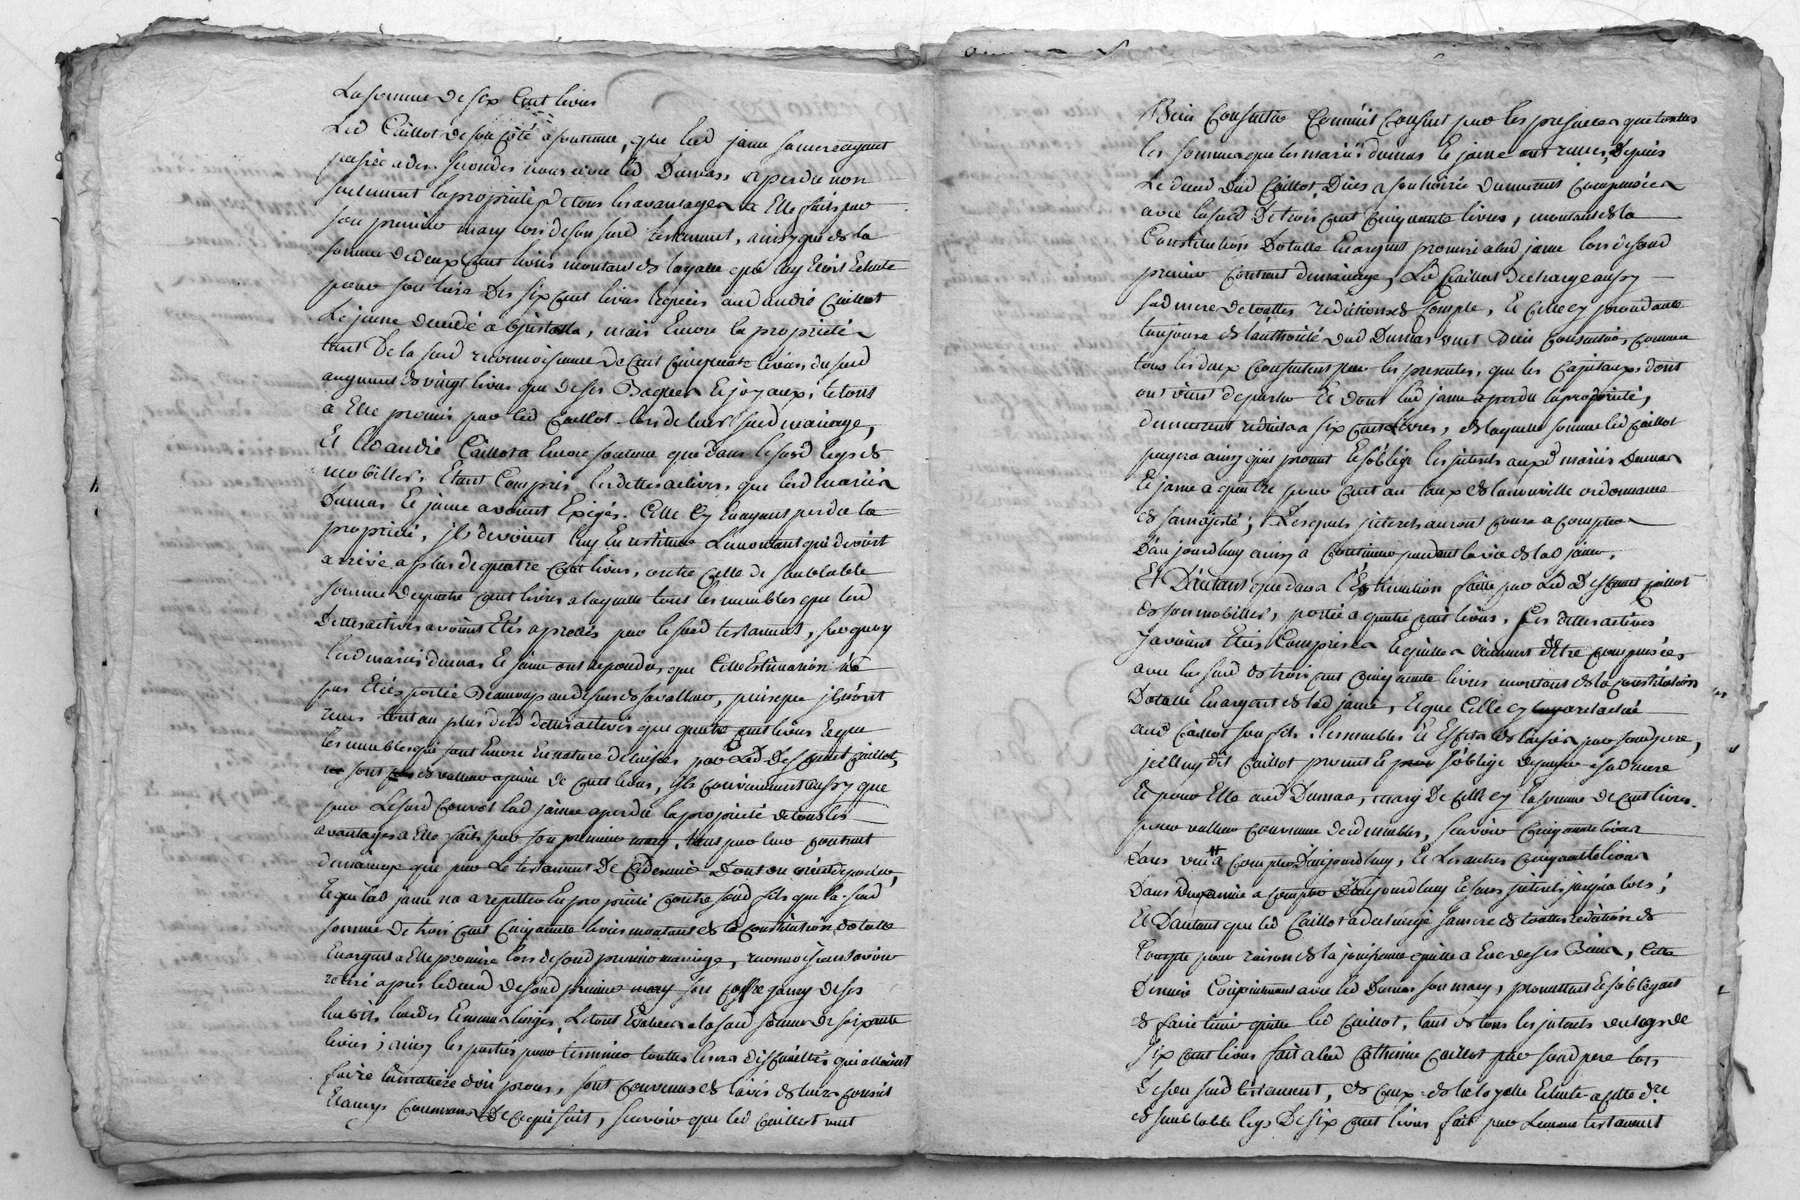 La somme de six Cent livres
Led Caillot de son coté a soutenu, que lad jaime sa mere ayant
passée a des secondes noces avec led Dumas a perdu non
seulement la proprieté de tous les avantages a Elle faits par
son premier mary lors de son sud testament, ainsy que de la
somme de deux Cent livres montant de la qui luy Etoit Echute
pour son des six Cent livres legués aud andré Caillot
Le jeune decedé mais Encore la proprieté
tant De la sud reconnoissance de Cent Cinquante livres, du sud
augment de vingt livres que de ses Bagues Et joyaux, le tout
a Elle promis par led Caillot lors de leur sud mariage,
Et led andré Caillot a Encore soutenu que dans le sud legs de
mobillier, Etant Compris les dettes actives, que lesd mariés
Dumas Et jaime avoient Exigés. Celle Cy En ayant perdu la
proprieté, ils devoient luy En restituer Le montant qui devoit
arriver a plus de quatre Cent livres, outre Celle de semblable
somme de quatre Cent livres a laquelle tous les meubles que lesd
Dettes actives avoient Etés apreciés par le sud testament, sur quoy
lesd mariés dumas Et jaime ont repondu, que Cette Estimation
pas Etée portée Beaucoup au dessus de sa valleur, puisque ils n'ont
reçu tout au plus desd dettes actives que quatre Cent livres Et que
les meubles qui sont Encore En nature delaissés par Led Caillot,
sont de valleur a peine de Cent livres, ils Conviennent aussy que
par Le sud Convol lad jaime a perdu la proprieté de tous les
avantages a Elle faits par son premier mary, tant par leur Contrat
de mariage que par Le testament De Ce dernier Dont on vient de parler,
Et que lad jaime n'a a repeter En proprieté Contre sond fils que la sud
somme de trois Cent Cinquante livres montant de la Constitution dotalle
En argent a Elle promise lors de sond premier mariage, reconnoissant avoir
retiré apres le deced de sond premier mary son Coffre garny de ses
habits hardes Et menus linges, Le tout Evalué a la sud somme de soixante
livres; ainsy les parties pour terminer toutes leurs difficultés qui alloient
faire la matiere d'un proces, sont Convenus de l'avis de leurs Conseils
Et amys Communs de Ce qui suit, sçavoir que led Caillot veut
Bien Consentir Comme il Consent par les presentes que toutes
les sommes que les mariés dumas Et jaime ont reçues, Depuis
Le deced dud Caillot, Dües a son hoirie demeurent Compensées
avec la sud De trois Cent Cinquante livres, montant de la
Constitution Dotalle En argent promise a lad jaime lors de sond
premier Contrat de mariage, Led Caillot decharge aussy
sad mere de toutes redditions de Compte, Et Celle Cy procedant
toujours de l'authorité dud Dumas veut Bien Consentir, Comme
tous les deux Consentent par les presentes, que les Capitaux, dont
on vient de parler Et dont lad jaime a perdu la proprieté,
demeurent reduits a six Cent Livres, de laquelle somme led Caillot
payera ainsy qu'il promet Et s'oblige les interets auxd mariés Dumas
Et jaime a quatre pour Cent au taux de la nouvelle ordonnance
de sa majesté; Lesquels interets auront Cours a Compter
D'aujourd'huy ainsy a Continuer pendant la vie de lad jaime.
Et D'autant que dans l'Estimation faite par Led Caillot
de son mobillier, portée a quatre Cent livres, Les dettes actives
y avoient Etés Comprises Et qu'elles viennent d'être Compensées
avec la sud de trois Cent Cinquante livres montant de la Constitution
Dotalle En argent de lad jaime, Et que Celle Cy a relaché
aud Caillot son fils Les meubles Et Effets delaissés par sond pere,
icelluy dit Caillot promet Et s'oblige de payer a sad mere
Et pour Elle aud Dumas, mary De Celle Cy La somme de Cent livres
pour valleur Commune desd meubles, sçavoir Cinquante livres
Dans un a Compter D'aujourd'huy, Et Les autres Cinquante livres
Dans deux années a Compter D'aujourd'huy Et sans interets jusqu'alors;
Et Dautant que led Caillot a dechargé sa mere de toutes redition de
Compte pour raison de la jouissance qu'elle a Eüe de ses Biens, Cette
Derniere Conjointement avec led Dumas son mary, promettent Et s'obligent
de faire tenir quitte led Caillot, tant de tous les interets du legs de
six Cent livres fait a lad Catherine Caillot par sond pere lors
De son sud testament, de Ceux de la Echute a cette d.te
de semblable legs De six Cent livres fait par Le meme testament